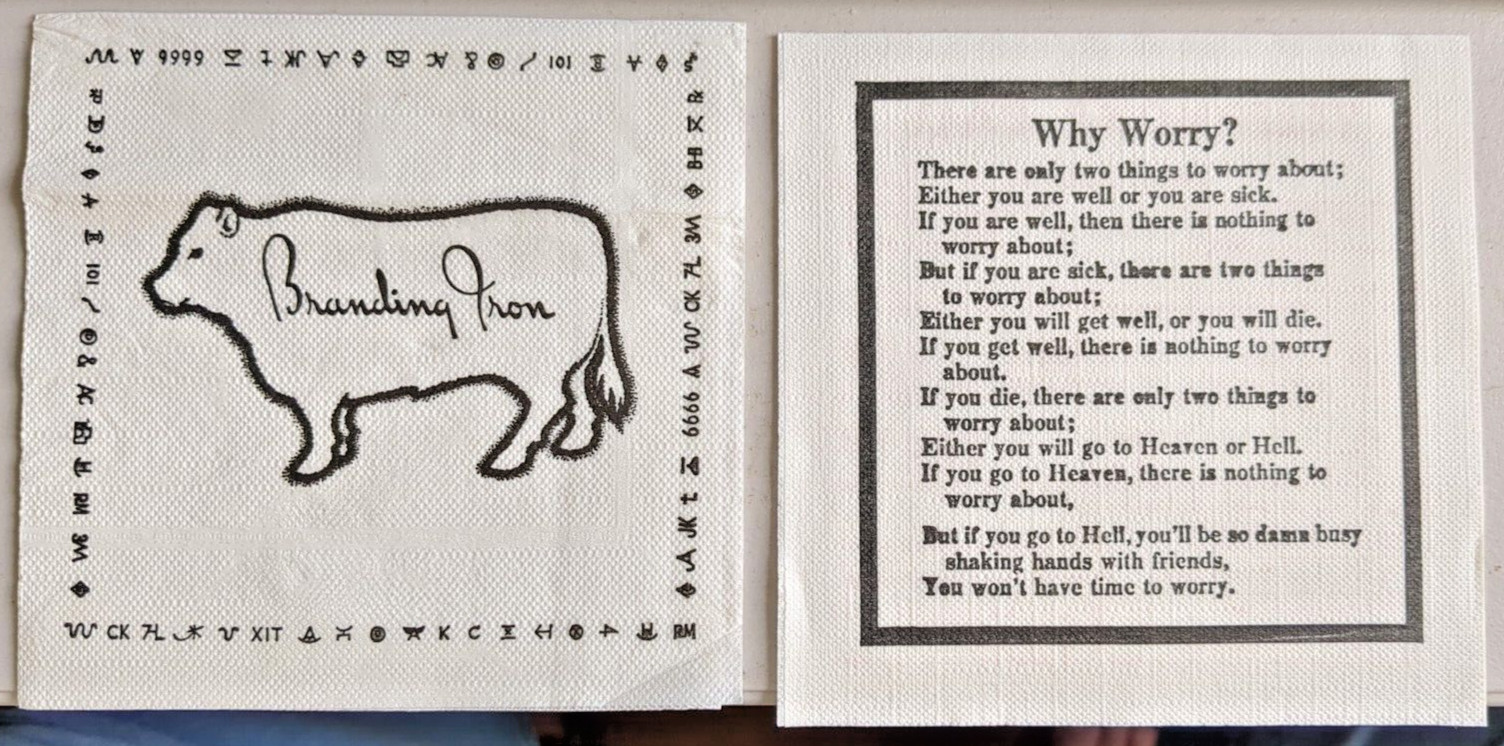 9999
101
Branding Iron
101
BB
3M
7L
CK
6666
A
JK
t
CK 7L
XIT
K C
RM
Why Worry?
There are only two things to worry about;
Either you are well or you are sick.
If you are well, then there is nothing to
worry about;
But if you are sick, there are two things
to worry about;
Either you will get well, or you will die.
If you get well, there is nothing to worry
about.
If you die, there are only two things to
worry about;
Either you will go to Heaven or Hell.
If you go to Heaven, there is nothing to
worry about,
But if you go to Hell, you'll be so damn busy
shaking hands with friends,
You won't have time to worry.